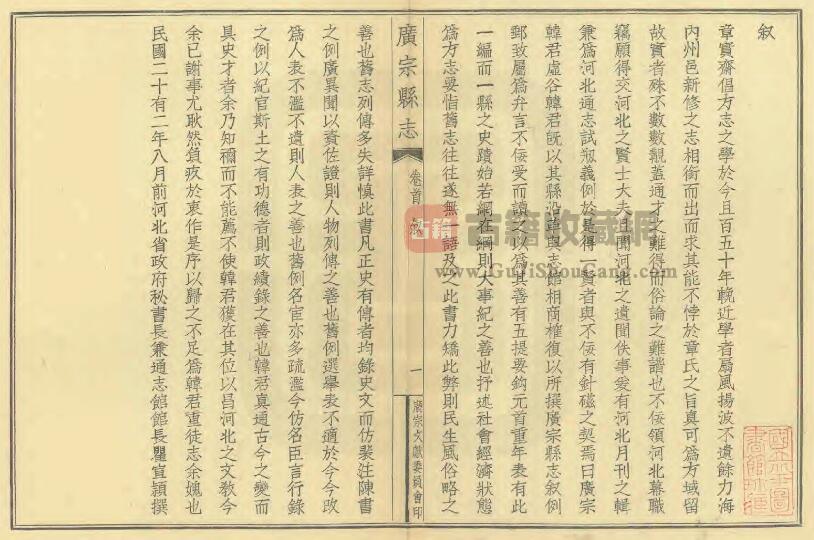 叙
章實齋倡方志之學於今且百五十年輓近學者扇風揚波不遺餘力海
內州邑新修之志相銜而出而求其能不悖於章氏之旨真可爲方域留
故實者殊不數數覯蓋通才之難得而俗論之難諧也不佞領河北幕職
竊願得交河北之賢士大夫且聞河北之遺聞佚事爰有河北月刊之輯
兼爲河北通志試瓶義例於是得一賢者與不佞有針磁之契焉曰廣宗
韓君虛谷韓君旣以其縣沿革與志館相商榷復以所撰廣宗縣志叙例
郵致屬爲弁言不佞受而讀之以爲其善有五提要鉤元首重年表有此
一編而一縣之史蹟始若網在綱則大事紀之善也抒述社會經濟狀態
爲方志要恉舊志往往遂無一語及之此書力矯此弊則民生風俗略之
廣宗縣志
卷首 叙
一
廣宗文獻委員會印
善也舊志列傳多失詳慎此書凡正史有傳者均錄史文而仿裴注陳書
之例廣異聞以資佐證則人物列傳之善也舊例選舉表不適於今今改
爲人表不濫不遺則人表之善也舊例名宦亦多疏濫今仿名臣言行錄
之例以紀官斯土之有功德者則政績錄之善也韓君真通古今之變而
具史才者余乃知禰而不能薦不使韓君獲在其位以昌河北之文敎今
余已謝事尤耿然負疚於衷作是序以歸之不足爲韓君重徒志余媿也
民國二十有二年八月前河北省政府秘書長兼通志館館長瞿宣穎撰
古籍 古籍收藏網
www.GujiShouCang.com